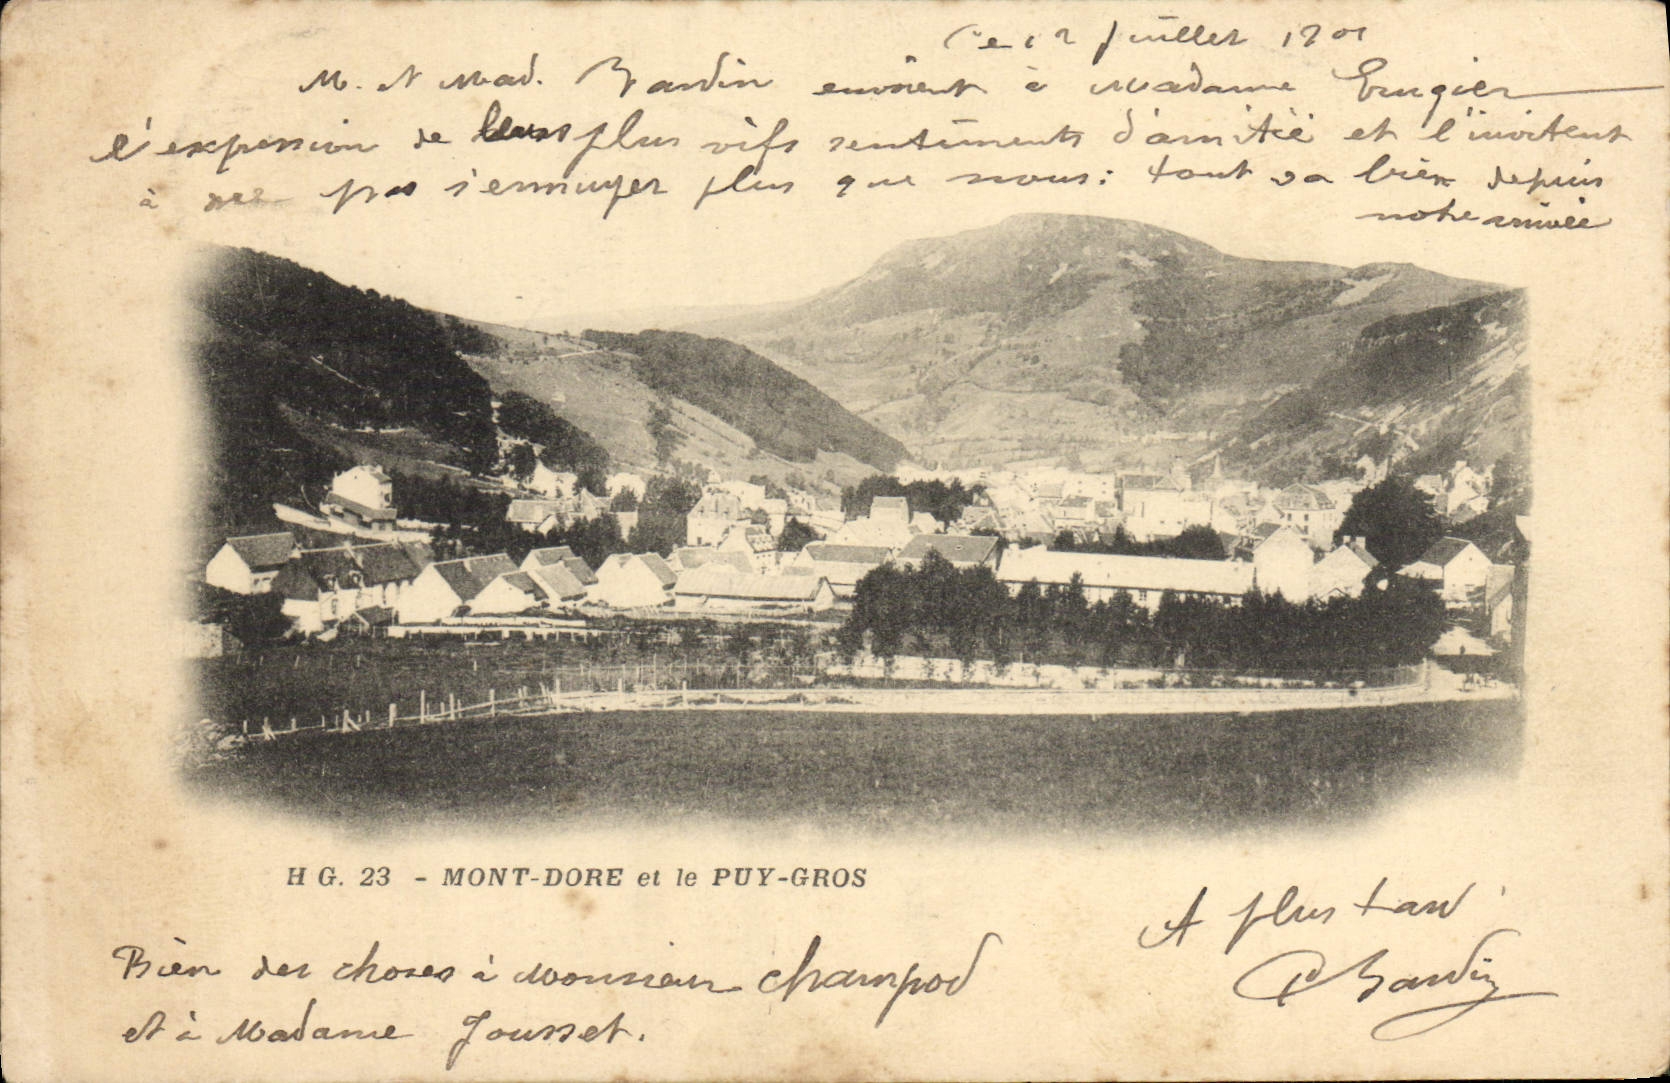 Ce 12 Juillet 1901
M. et Mad. Bardin envoient à Madame
l'expression de leurs plus vifs sentiments d'amitié et l'invitent
à ne pas s'ennuyer plus que nous : tout va bien depuis
notre arrivée
H G. 23 - MONT-DORE et le PUY-GROS
A plus tard
Bardin
Bien des choses à Monsieur Champod
et à Madame Jousset.